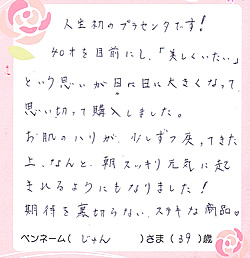 人生初のプラセンタです！
40才を目前にし、「美しくいたい」
という思いが日に日に大きくなって
思い切って購入しました。
お肌のハリが、少しずつ戻ってきた
上、なんと、朝スッキリ元気に起
きれるようにもなりました！
期待を裏切らない、ステキな商品。
ペンネーム（じゅん　　　）さま（39）歳